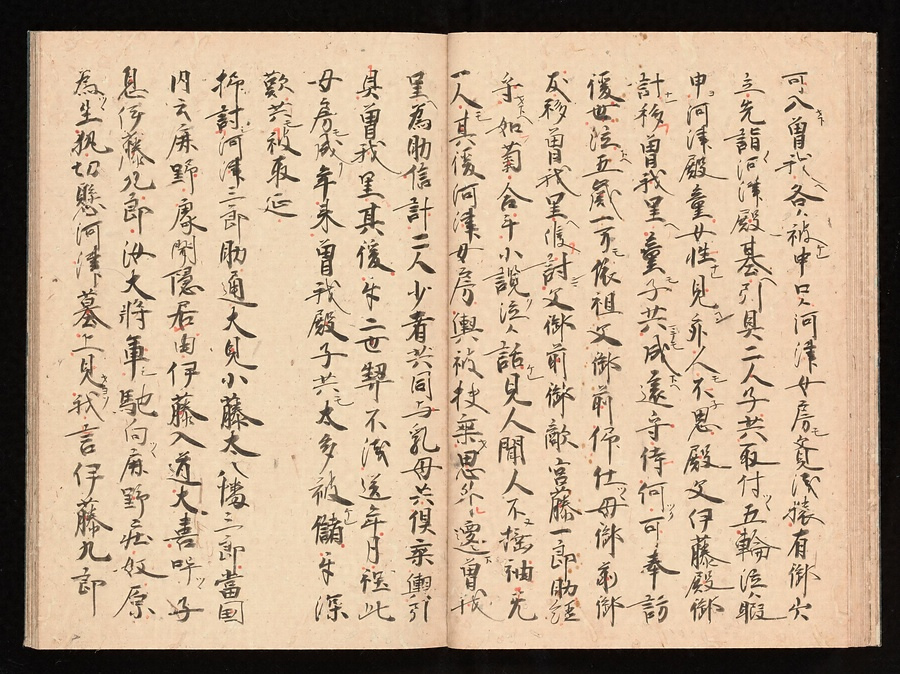 可入曽我各被申口河津女房賁浅猿有御穴
立先詣河津殿墓引具二人子共取付五輪泣暇
申河津殿童女性見外人不思殿父伊藤殿御
計移曽我里童子共成遠守侍何可奉訪
後世泣五歳一万依祖父御前仰仕母御前御
友移曽我里候討父御前御敵宮藤一郎助経
乎如菊合千小讃泣話見人聞人不揺袖无
一人其後河津女房輿被抶乗思外遷曽我
里為助信計二人少者共同与乳母共倶乗輿引
具曽我里其後女二世契不浅送年月程此
母房成年来曽我殿子共太多被儲女深
歎共被取延
抑討河津三郎助通大見小藤太八幡三郎當国
内云麻野處閇隠居由伊藤入道大喜呼子
息伊藤九郎汝大将軍馳向麻野庄奴原
為生執切懸河津墓上見我言伊藤九郎